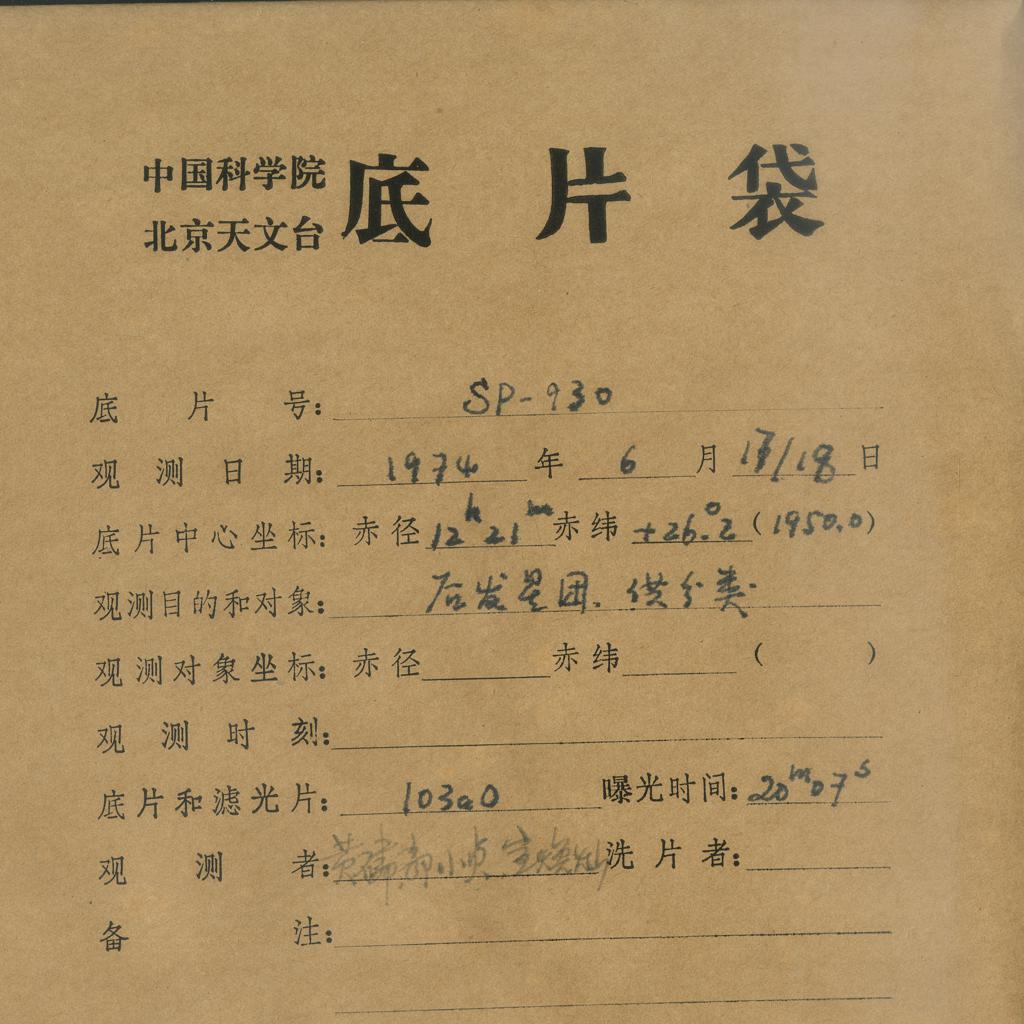 中国科学院
北京天文台
底片袋
底片号: SP-930
观测日期: 1974年6月17/18日
底片中心坐标: 赤径12h21m赤纬+26.°2(1950.0)
观测目的和对象: 后发星团. 供分类.
观测对象坐标: 赤径 赤纬 ( )
观测时刻:
底片和滤光片: 103aO 曝光时间: 20m07s
观测者: 洗片者:
备注: